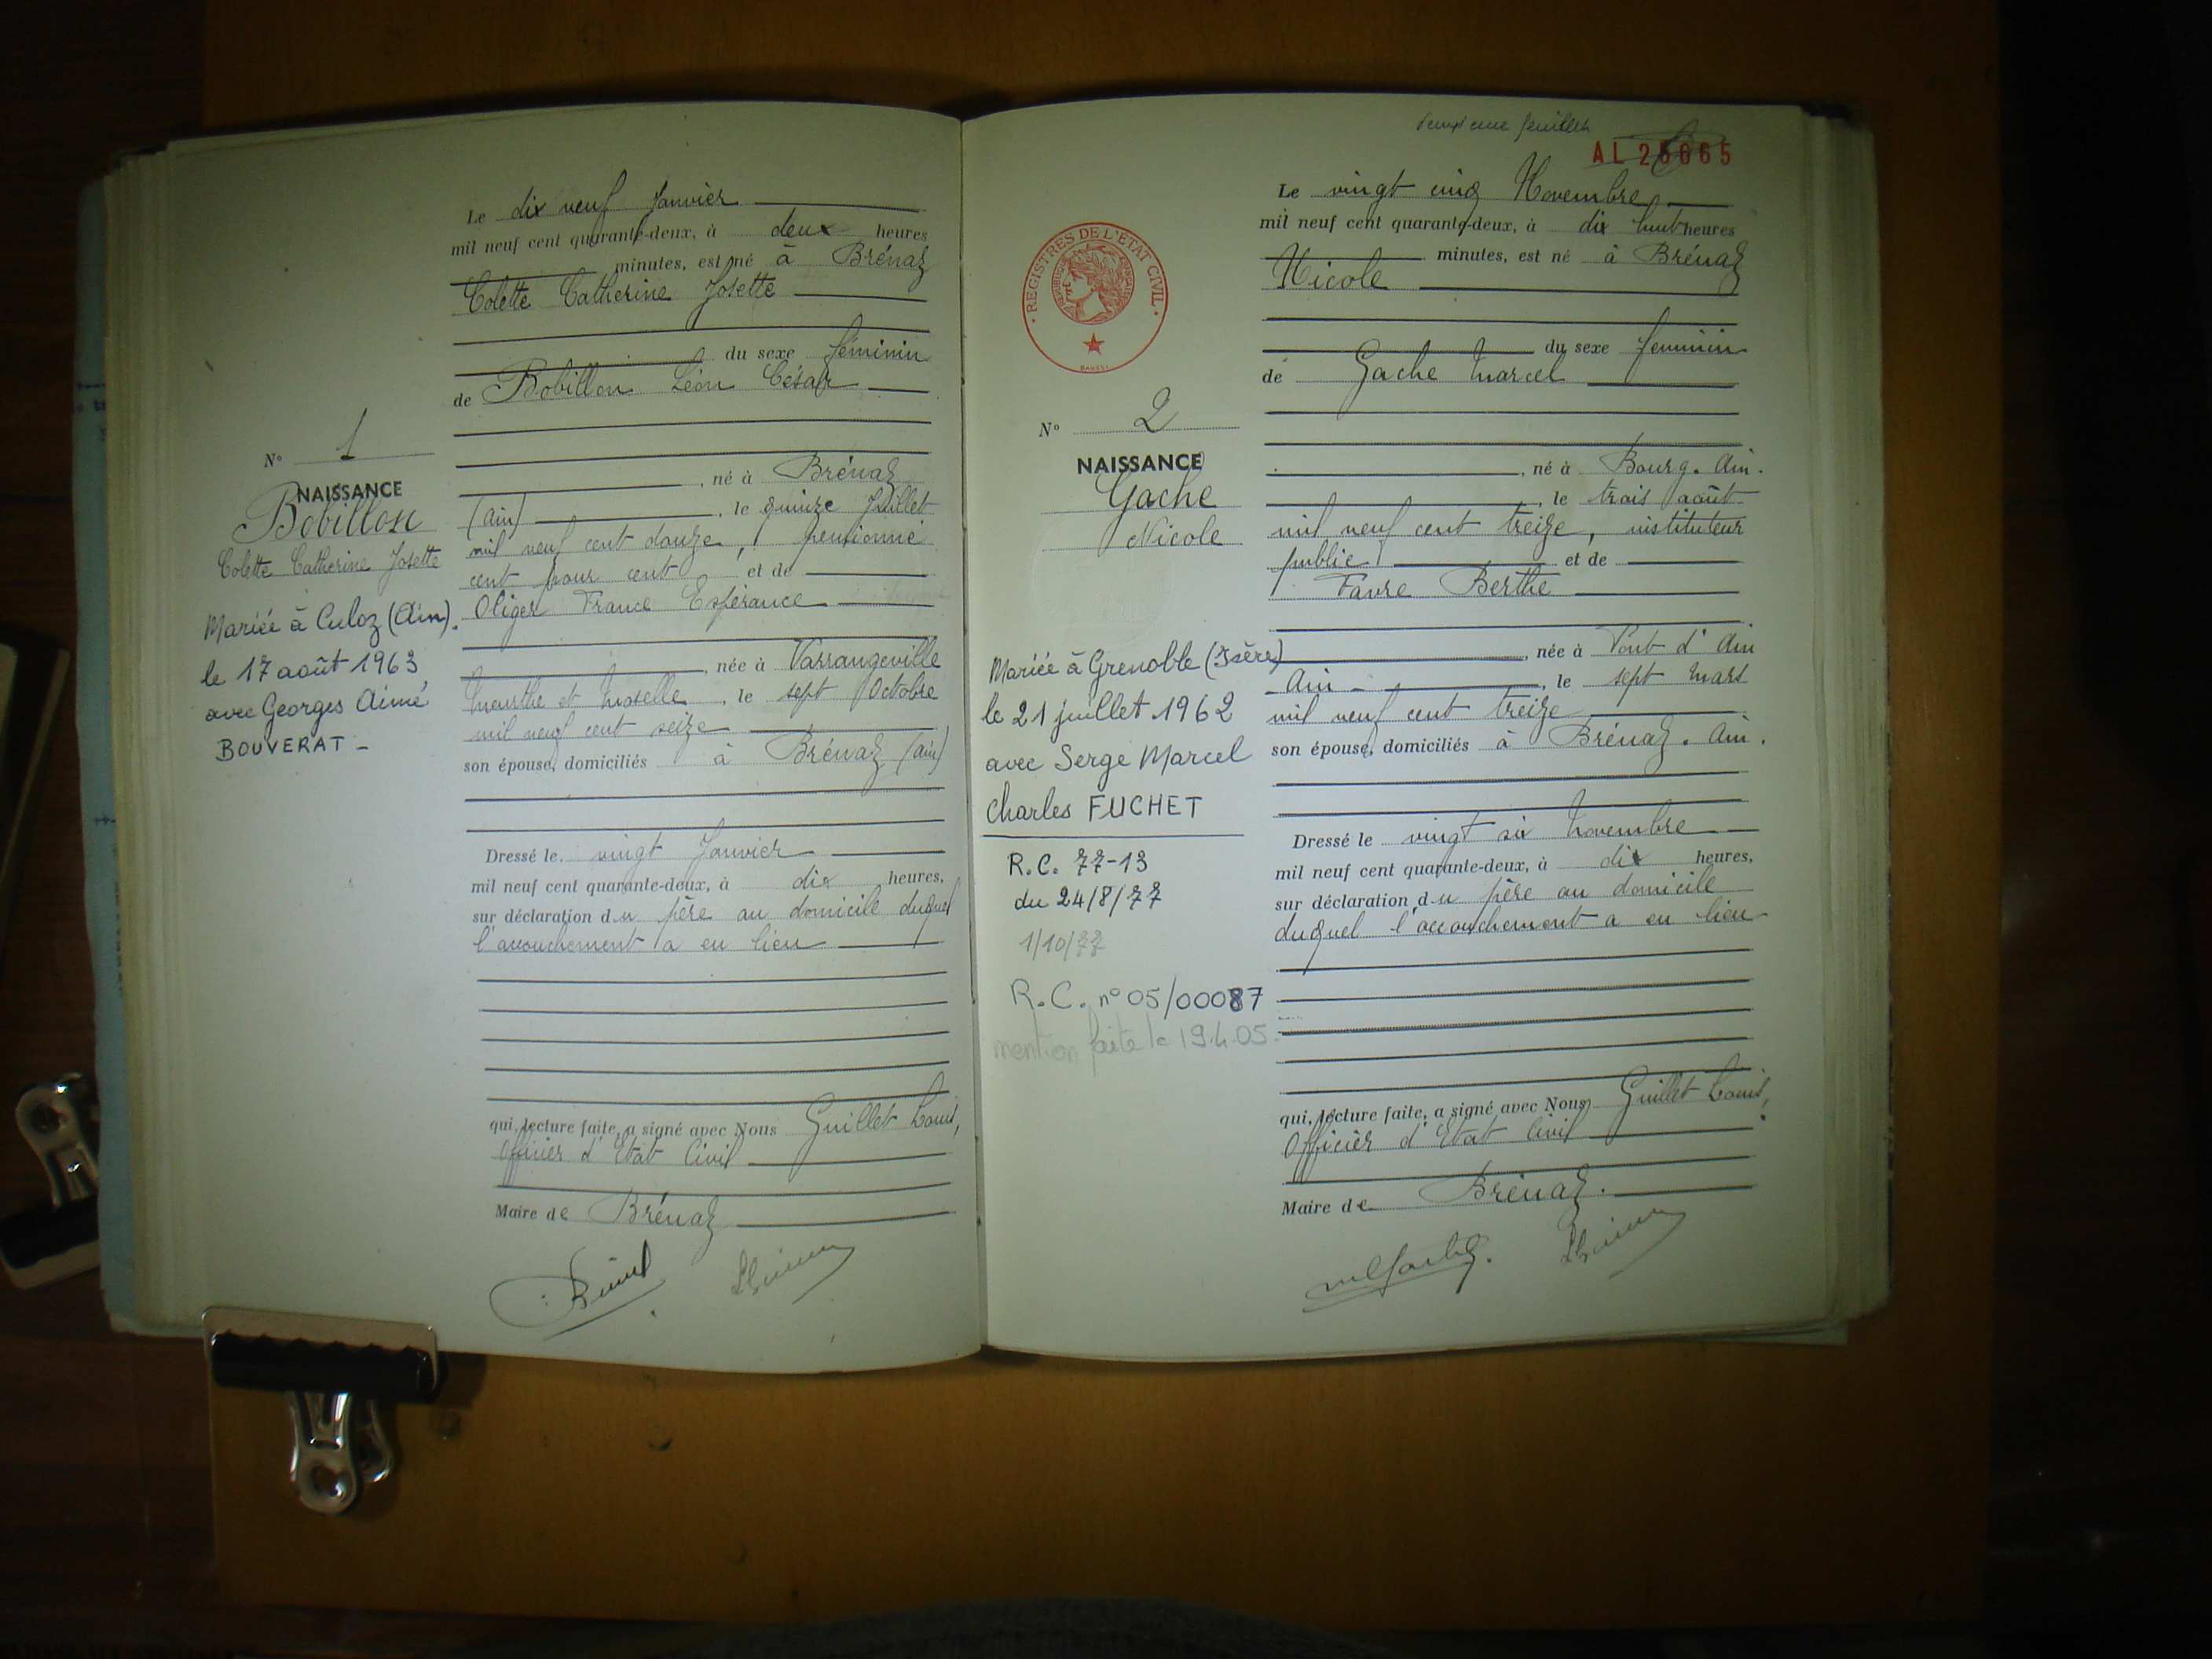 Le dix neuf Janvier
mil neuf cent quarante-deux, à deux heures
minutes, est né à Brénaz
Colette Catherine Josette
du sexe féminin
de Bobillon Léon César
N° 1
NAISSANCE
Bobillon
Colette Catherine Josette
Mariée à Culoz (Ain).
le 17 août 1963,
avec Georges Aimé
BOUVERAT -
, né à Brénaz
(Ain) , le quinze Juillet
mil neuf cent douze, pensionné
cent pour cent et de
Oliger France Espérance
, née à Varrangeville
Meurthe et Moselle , le sept Octobre
mil neuf cent seize
son épouse, domiciliés à Brénaz (Ain)
Dressé le vingt Janvier
mil neuf cent quarante-deux, à dix heures,
sur déclaration du père au domicile duquel
l'accouchement a eu lieu
qui, lecture faite, a signé avec Nous Guillet Louis,
Officier d'Etat Civil
Maire de Brénaz
feuillet
AL 25665
REGISTRES DE L'ETAT CIVIL
Le vingt cinq Novembre
mil neuf cent quarante-deux, à dix huit heures
minutes, est né à Brénaz
Nicole
du sexe feminin
de Gache Marcel
N° 2
NAISSANCE
Gache
Nicole
Mariée à Grenoble (Isère)
le 21 juillet 1962
avec Serge Marcel
Charles FUCHET
R.C. 77-13
du 24/8/77
1/10/77
R.C. n° 05/00087
mention faite le 19.4.05.
, né à Bourg. Ain.
, le trois août
mil neuf cent treize, instituteur
public et de
Favre Berthe
, née à Pont d'Ain
- Ain - , le sept Mars
mil neuf cent treize
son épouse, domiciliés à Brénaz. Ain.
Dressé le vingt six Novembre
mil neuf cent quarante-deux, à dix heures,
sur déclaration du père au domicile
duquel l'accouchement a eu lieu
qui, lecture faite, a signé avec Nous Guillet Louis,
Officier d'Etat Civil
Maire de Brénaz.